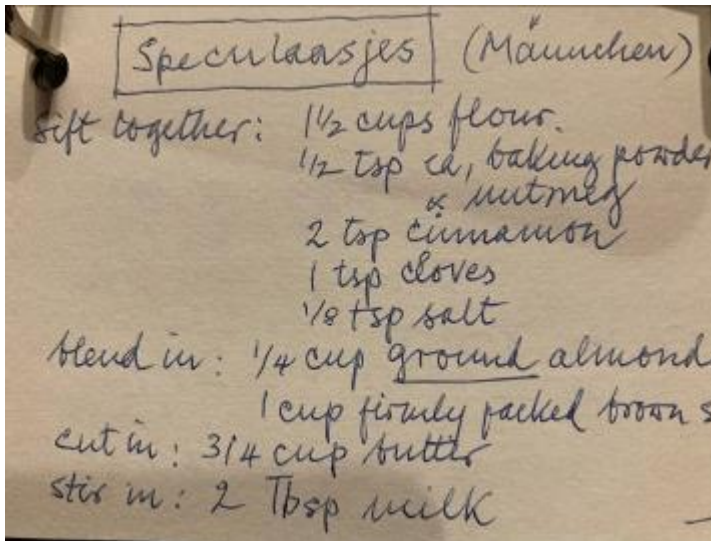 Speculaasjes (Männchen)
sift together: 1 1/2 cups flour.
1/2 tsp ea, baking powder
& nutmeg
2 tsp cinnamon
1 tsp cloves
1/8 tsp salt
blend in: 1/4 cup ground almond
1 cup firmly packed brown s
cut in: 3/4 cup butter
stir in: 2 Tbsp milk